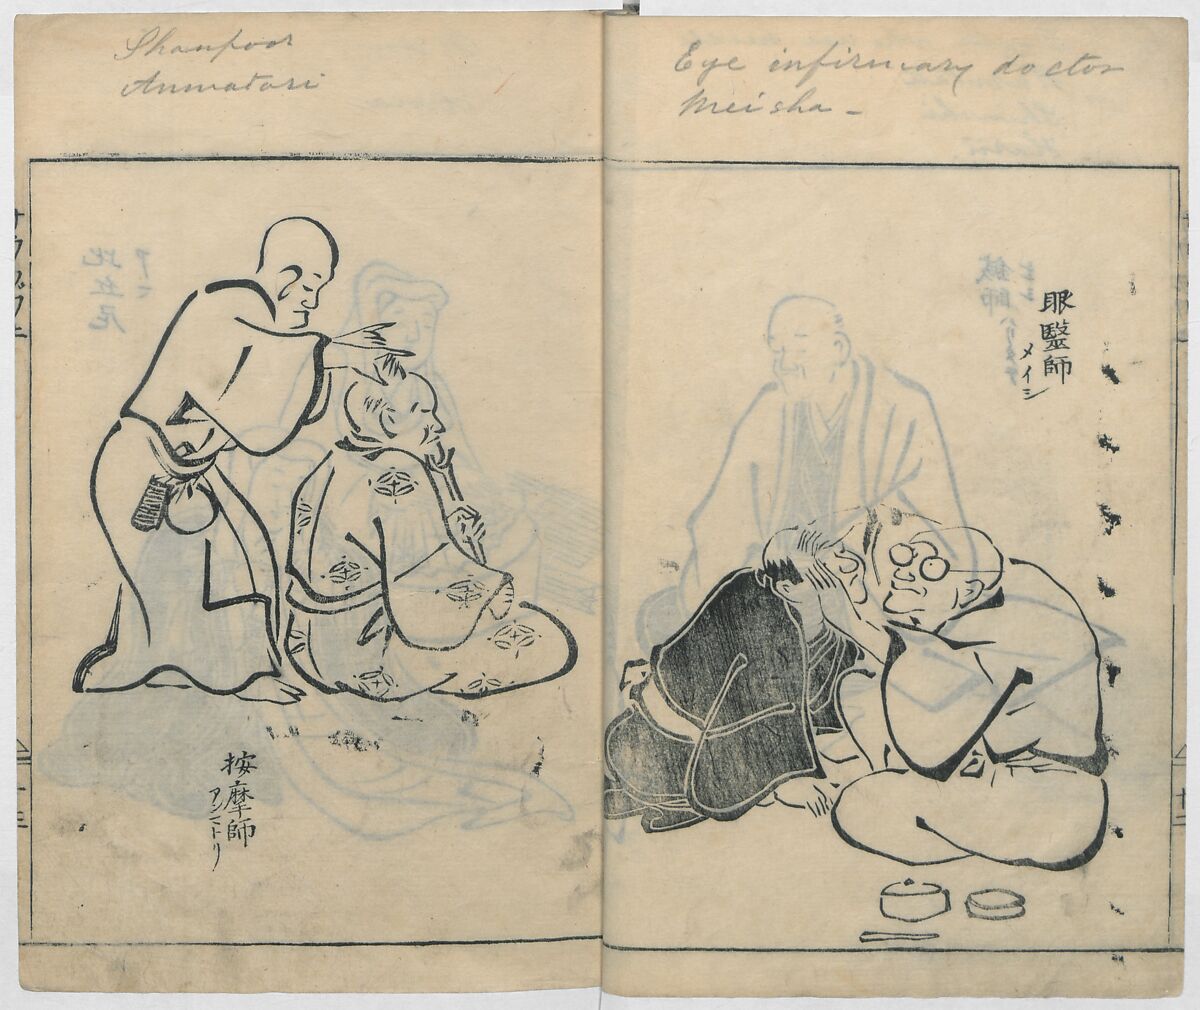 Eye infirmary doctor
Meisha -
眼醫師
メイシ
Shanpoor
Anmatori
按摩師
アンマトリ